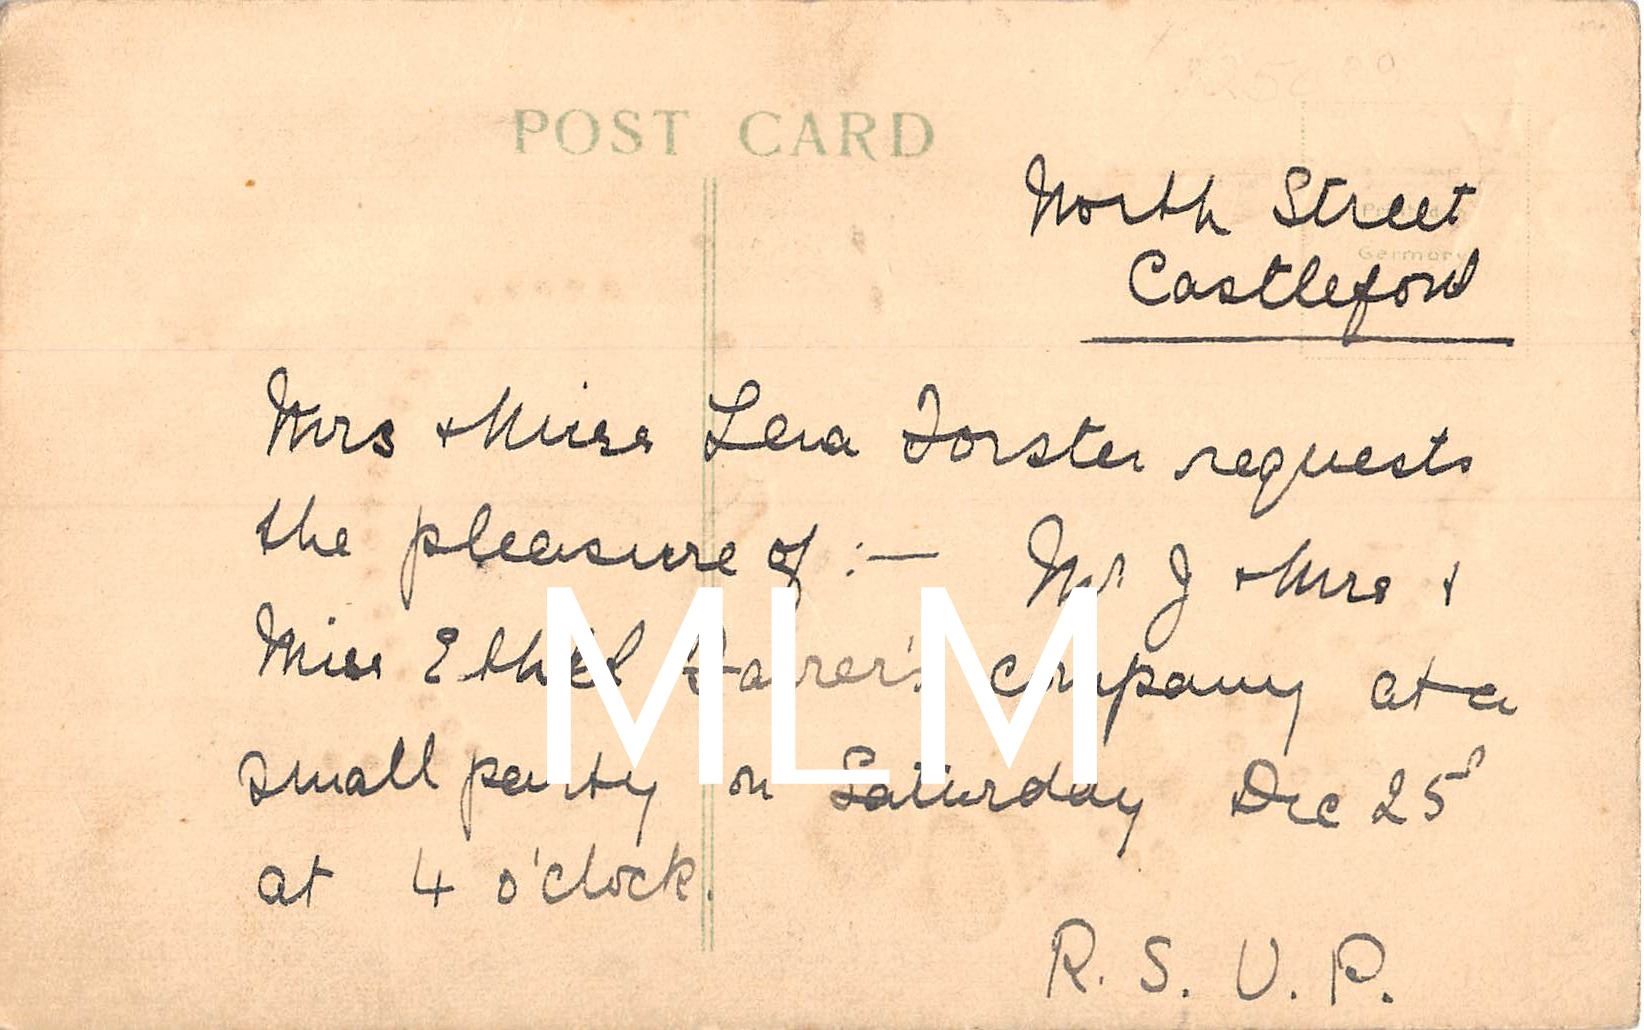 POST CARD
North Street
Castleford
Germany
Mrs + Miss Lena Forster requests
the pleasure of :— Mr J + Mrs +
Miss Ethel company at a
MLM
small party on Saturday Dec 25
at 4 o'clock.
R. S. V. P.